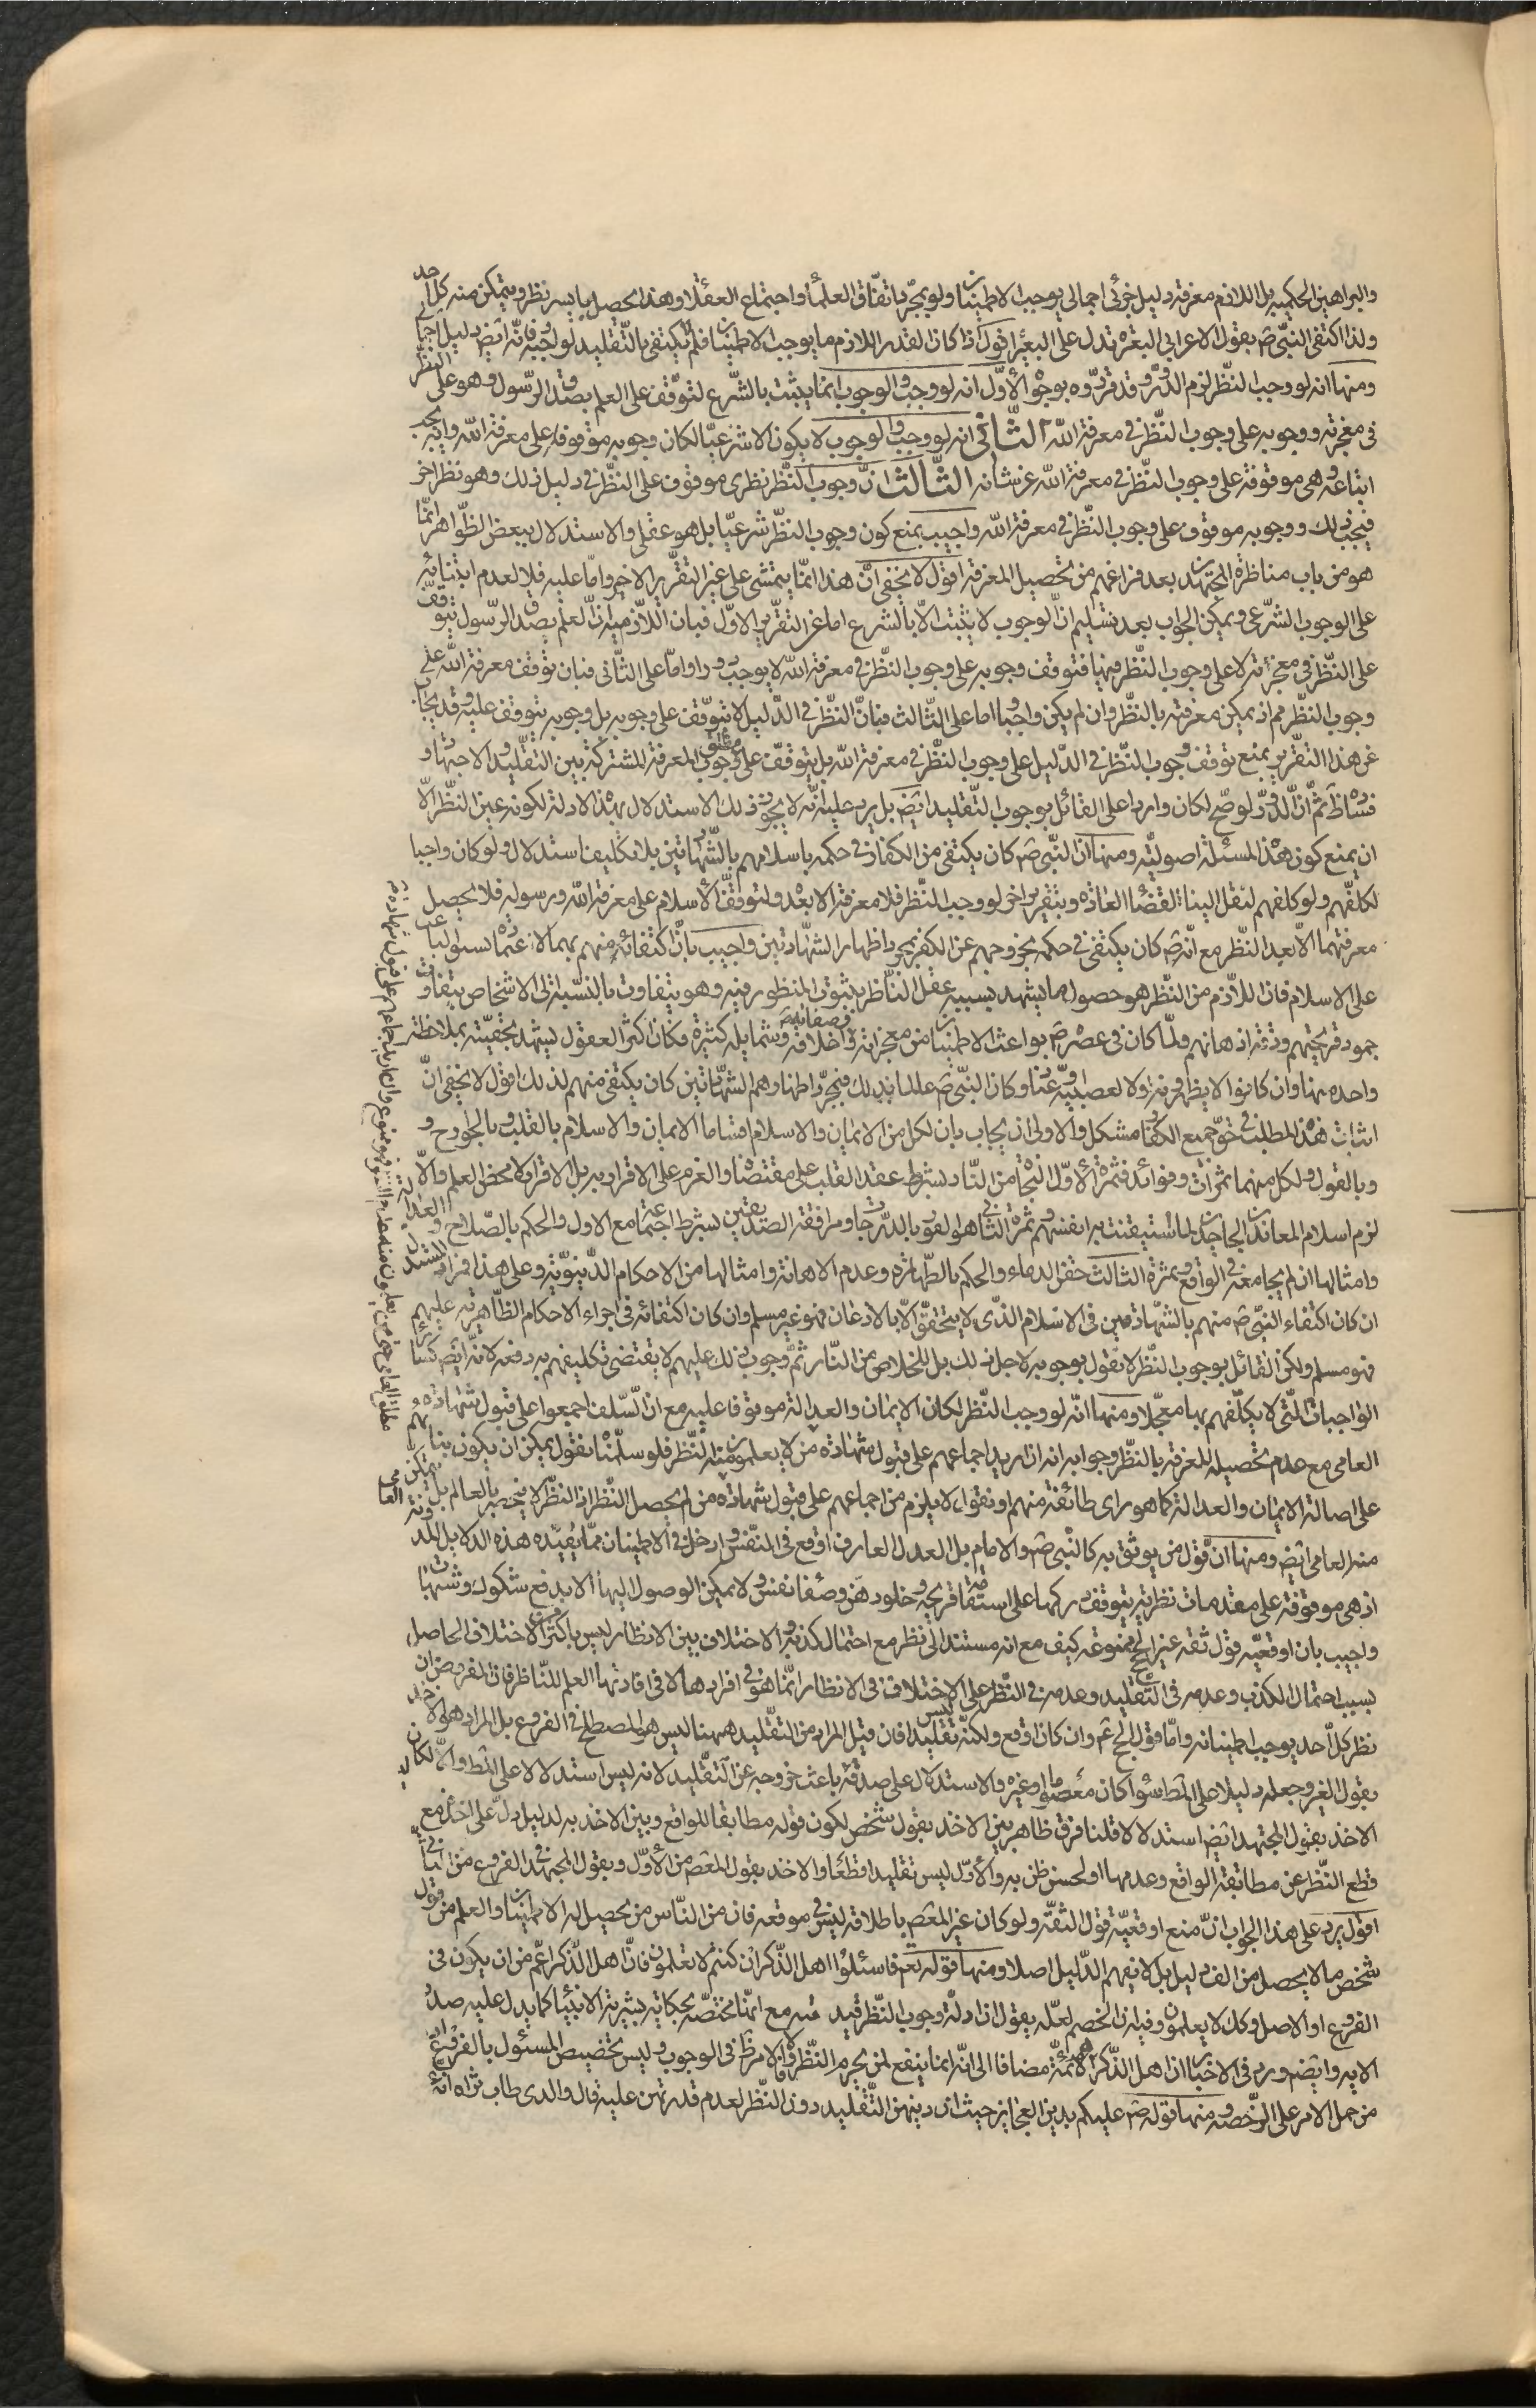 والبراهين الحكمية بل اللازم معرفة دليل جزئى اجمالى يوجب الاطمينان ولو بمجرد اتفاق العلماء واجتماع العقلاء وهذا يحصل بايسر نظر ويتمكن منه كل احد
ولذا اكتفى النبى ص بقول الاعرابى البعرة تدل على البعير اقول اذا كان القدر اللازم ما يوجب الاطمينان فلم لا يكتفى بالتقليد لو اوجبه فانه ايض دليل اجمالى
ومنها انه لو وجب النظر لزم الدور وقد قرروه بوجوه الاول انه لو وجب والوجوب انما يثبت بالشرع لتوقف على العلم بصدق الرسول وهو على النظر
فى معجزته ووجوبه على وجوب النظر فى معرفة الله الثانى انه لو وجب والوجوب لا يكون الا شرعيا لكان وجوبه موقوفا على معرفة الله وانه يجب
اتباعه وهى موقوفة على وجوب النظر فى معرفة الله عز شانه الثالث ان وجوب النظر نظرى موقوف على النظر فى دليل ذلك وهو نظر اخر
فيجب ذلك ووجوبه موقوف على وجوب النظر فى معرفة الله واجيب بمنع كون وجوب النظر شرعيا بل هو عقلى والاستدلال ببعض الظواهر انما
هو من باب مناظرة المجتهدين بعد فراغهم من تحصيل المعرفة اقول لا يخفى ان هذا انما يتمشى على غير التقرير الاخير واما عليه فلا لعدم ابتنائه
على الوجوب الشرعى ويمكن الجواب بعد تسليم ان الوجوب لا يثبت الا بالشرع اما عن التقرير الاول فبان اللازم منه ان العلم بصدق الرسول يتوقف
على النظر فى معجزته لا على وجوب النظر فيها فتوقف وجوبه على وجوب النظر فى معرفة الله لا يوجب دورا واما على الثانى فبان توقف معرفة الله على
وجوب النظر مم اذ يمكن معرفته بالنظر وان لم يكن واجبا واما على الثالث فبان النظر فى الدليل لا يتوقف على وجوبه بل وجوبه يتوقف عليه وقد يجاب
عن هذا التقرير بمنع توقف وجوب النظر فى الدليل على وجوب النظر فى معرفة الله بل يتوقف على وجوب مطلق المعرفة المشتركة بين التقليد والاجتهاد و
فساده ظ ثم ان الدور لو صح لكان واردا على القائل بوجوب التقليد ايض بل يرد عليه انه لا يجوز ذلك الاستدلال بهذه الادلة لكونه عين النظر الا
ان يمنع كون هذه المسئلة اصولية ومنها ان النبى ص كان يكتفى من الكفار فى حكمه باسلامهم بالشهادتين بلا تكليف استدلال ولو كان واجبا
لكلفهم ولو كلفهم لنقل الينا لقضاء العادة وبتقرير اخر لو وجب النظر فلا معرفة الا بعده ولتوقف الاسلام على معرفة الله ورسوله فلا يحصل
معرفتهما الا بعد النظر مع انه ص كان يكتفى فى حكمه بخروجهم عن الكفر بمجرد اظهار الشهادتين واجيب بان اكتفائه منهم بهما لا
على الاسلام فان اللازم من النظر هو حصول ما يشهد بسببه عقل الناظر بثبوت المنظور فيه وهو يتفاوت بالنسبة الى الاشخاص بتفاوت
جودة قريحتهم ودقة اذهانهم ولما كان فى عصره ص بواعث الاطمينان من معجزاته واخلاقه وصفاته وشمايله كثيرة فكان اكثر العقول يشهد بحقيته بملاحظة
واحدة منها وان كانوا لا يظهرونه ولا لعصبية وعناد وكان النبى ص عالما بذلك فبمجرد اظهارهم الشهادتين كان يكتفى منهم لذلك اقول لا يخفى ان
اثبات هذا المطلب فى حق جميع الكفار مشكل والاولى ان يجاب بان لكل من الايمان والاسلام اقساما الايمان والاسلام بالقلب وبالجوارح و
وبالقول ولكل منهما ثمرات وفوائد فثمرة الاول النجاة من النار بشرط عقد القلب على مقتضاه والعزم على الاقرار به بل الاقرار لا محض العلم والا
لزم اسلام المعاندين الجاحدين لما استيقنت به انفسهم وثمرة الثانى هو الفوز بالدرجات ومرافقة الصديقين بشرط اجتماعه مع الاول والحكم بالصلاح والعدالة
وامثالها ان لم يجامعه فى الواقع وثمرة الثالث حقن الدماء والحكم بالطهارة وعدم الاهانة وامثالها من الاحكام الدنيوية وعلى هذا فمراد المستدل
ان كان اكتفاء النبى ص منهم بالشهادتين فى الاسلام الذى لا يتحقق الا بالاذعان فهو غير مسلم وان كان اكتفائه فى اجراء الاحكام الظاهرية عليهم
فهو مسلم ولكن القائل بوجوب النظر لا يقول بوجوبه لاجل ذلك بل للخلاص من النار ثم وجوب ذلك عليهم لا يقتضى تكليفهم به دفعة لانه ايض كسائر
الواجبات التى لا يكلفهم بها معجلا ومنها انه لو وجب النظر لكان الايمان والعدالة موقوفا عليه مع ان السلف اجمعوا على قبول شهادة
العامى مع عدم تحصيله للمعرفة بالنظر وجوابه انه ان اريد اجماعهم على قبول شهادة من لا يعلمون منه النظر فلو سلمناه نقول يمكن ان يكون بنائهم
على اصالة الايمان والعدالة كما هو راى طائفة منهم او نقول لا يلزم من اجماعهم على قبول شهادة من لم يحصل النظر اذ النظر لا ينحصر بالعالم بل يتمكن
منه العامى ايض ومنها ان قول من يوثق به كالنبى ص والامام بل العدل العارف اوقع فى النفس وادخل فى الاطمينان مما يفيده هذه الدلايل المدونة
اذ هى موقوفة على مقدمات نظرية يتوقف دركها على استقامة قريحة وخلو ذهن وصفاء نفس ولا يمكن الوصول اليها الا بدفع شكوك وشبهات
واجيب بان اوقعية قول ثقة غير الحجج ممنوعة كيف مع انه مستند الى نظر مع احتمال كذبه والاختلاف بين الانظار ليس باكثر من الاختلاف الحاصل
بسبب احتمال الكذب وعدمه فى التقليد وعدمه فى النظر على ان الاختلاف فى الانظار انما هو فى افرادها لا فى افادتها العلم للناظر فان المفروض ان
نظر كل احد يوجب اطمينانه واما قول الحجج ع وان كان اوقع ولكنه ليس تقليدا فان قيل المراد من التقليد ههنا ليس هو المصطلح فى الفروع بل المراد هو الاخذ
بقول الغير وجعله دليلا على المط سواء كان معصوما او غيره والاستدلال على صدقه باعث خروجه عن التقليد لانه ليس استدلالا على المط والا لكان
الاخذ بقول المجتهد ايض استدلالا قلنا فرق ظاهر بين الاخذ بقول شخص لكون قوله مطابقا للواقع وبين الاخذ به لدليل دل على اخذه مع
قطع النظر عن مطابقة الواقع وعدمها او لحسن ظن به والاول ليس تقليدا قطعا والاخذ بقول المعصوم من الاول وبقول المجتهد فى الفروع من الثانى
اقول يرد على هذا الجواب ان منع اوقعية قول الثقة ولو كان غير المعصوم باطلاقه ليس فى موقعه فان من الناس من يحصل له الاطمينان والعلم من قول
شخص ما لا يحصل من الف دليل بل لا يفهم الدليل اصلا ومنها قوله تعالى فاسئلوا اهل الذكر ان كنتم لا تعلمون فان اهل الذكر اعم من ان يكون فى
الفروع او الاصول وكك لا يعلمون وفيه ان الخصم لعله يقول ان ادلة وجوب النظر قيد فيه مع انها مختصة بحكاية بشرية الانبياء كما يدل عليه صدر
الاية وايضا ورد فى الاخبار ان اهل الذكر هم الائمة مضافا الى انه انما ينفع لمن يحرم النظر والا فالامر ظ فى الوجوب وليس تخصيص المسئول بالفروع
من حمل الامر على الرخصة ومنها قوله ص عليكم بدين العجايز حيث ان دينهن التقليد دون النظر لعدم قدرتهن عليه قال والدى طاب ثراه انه